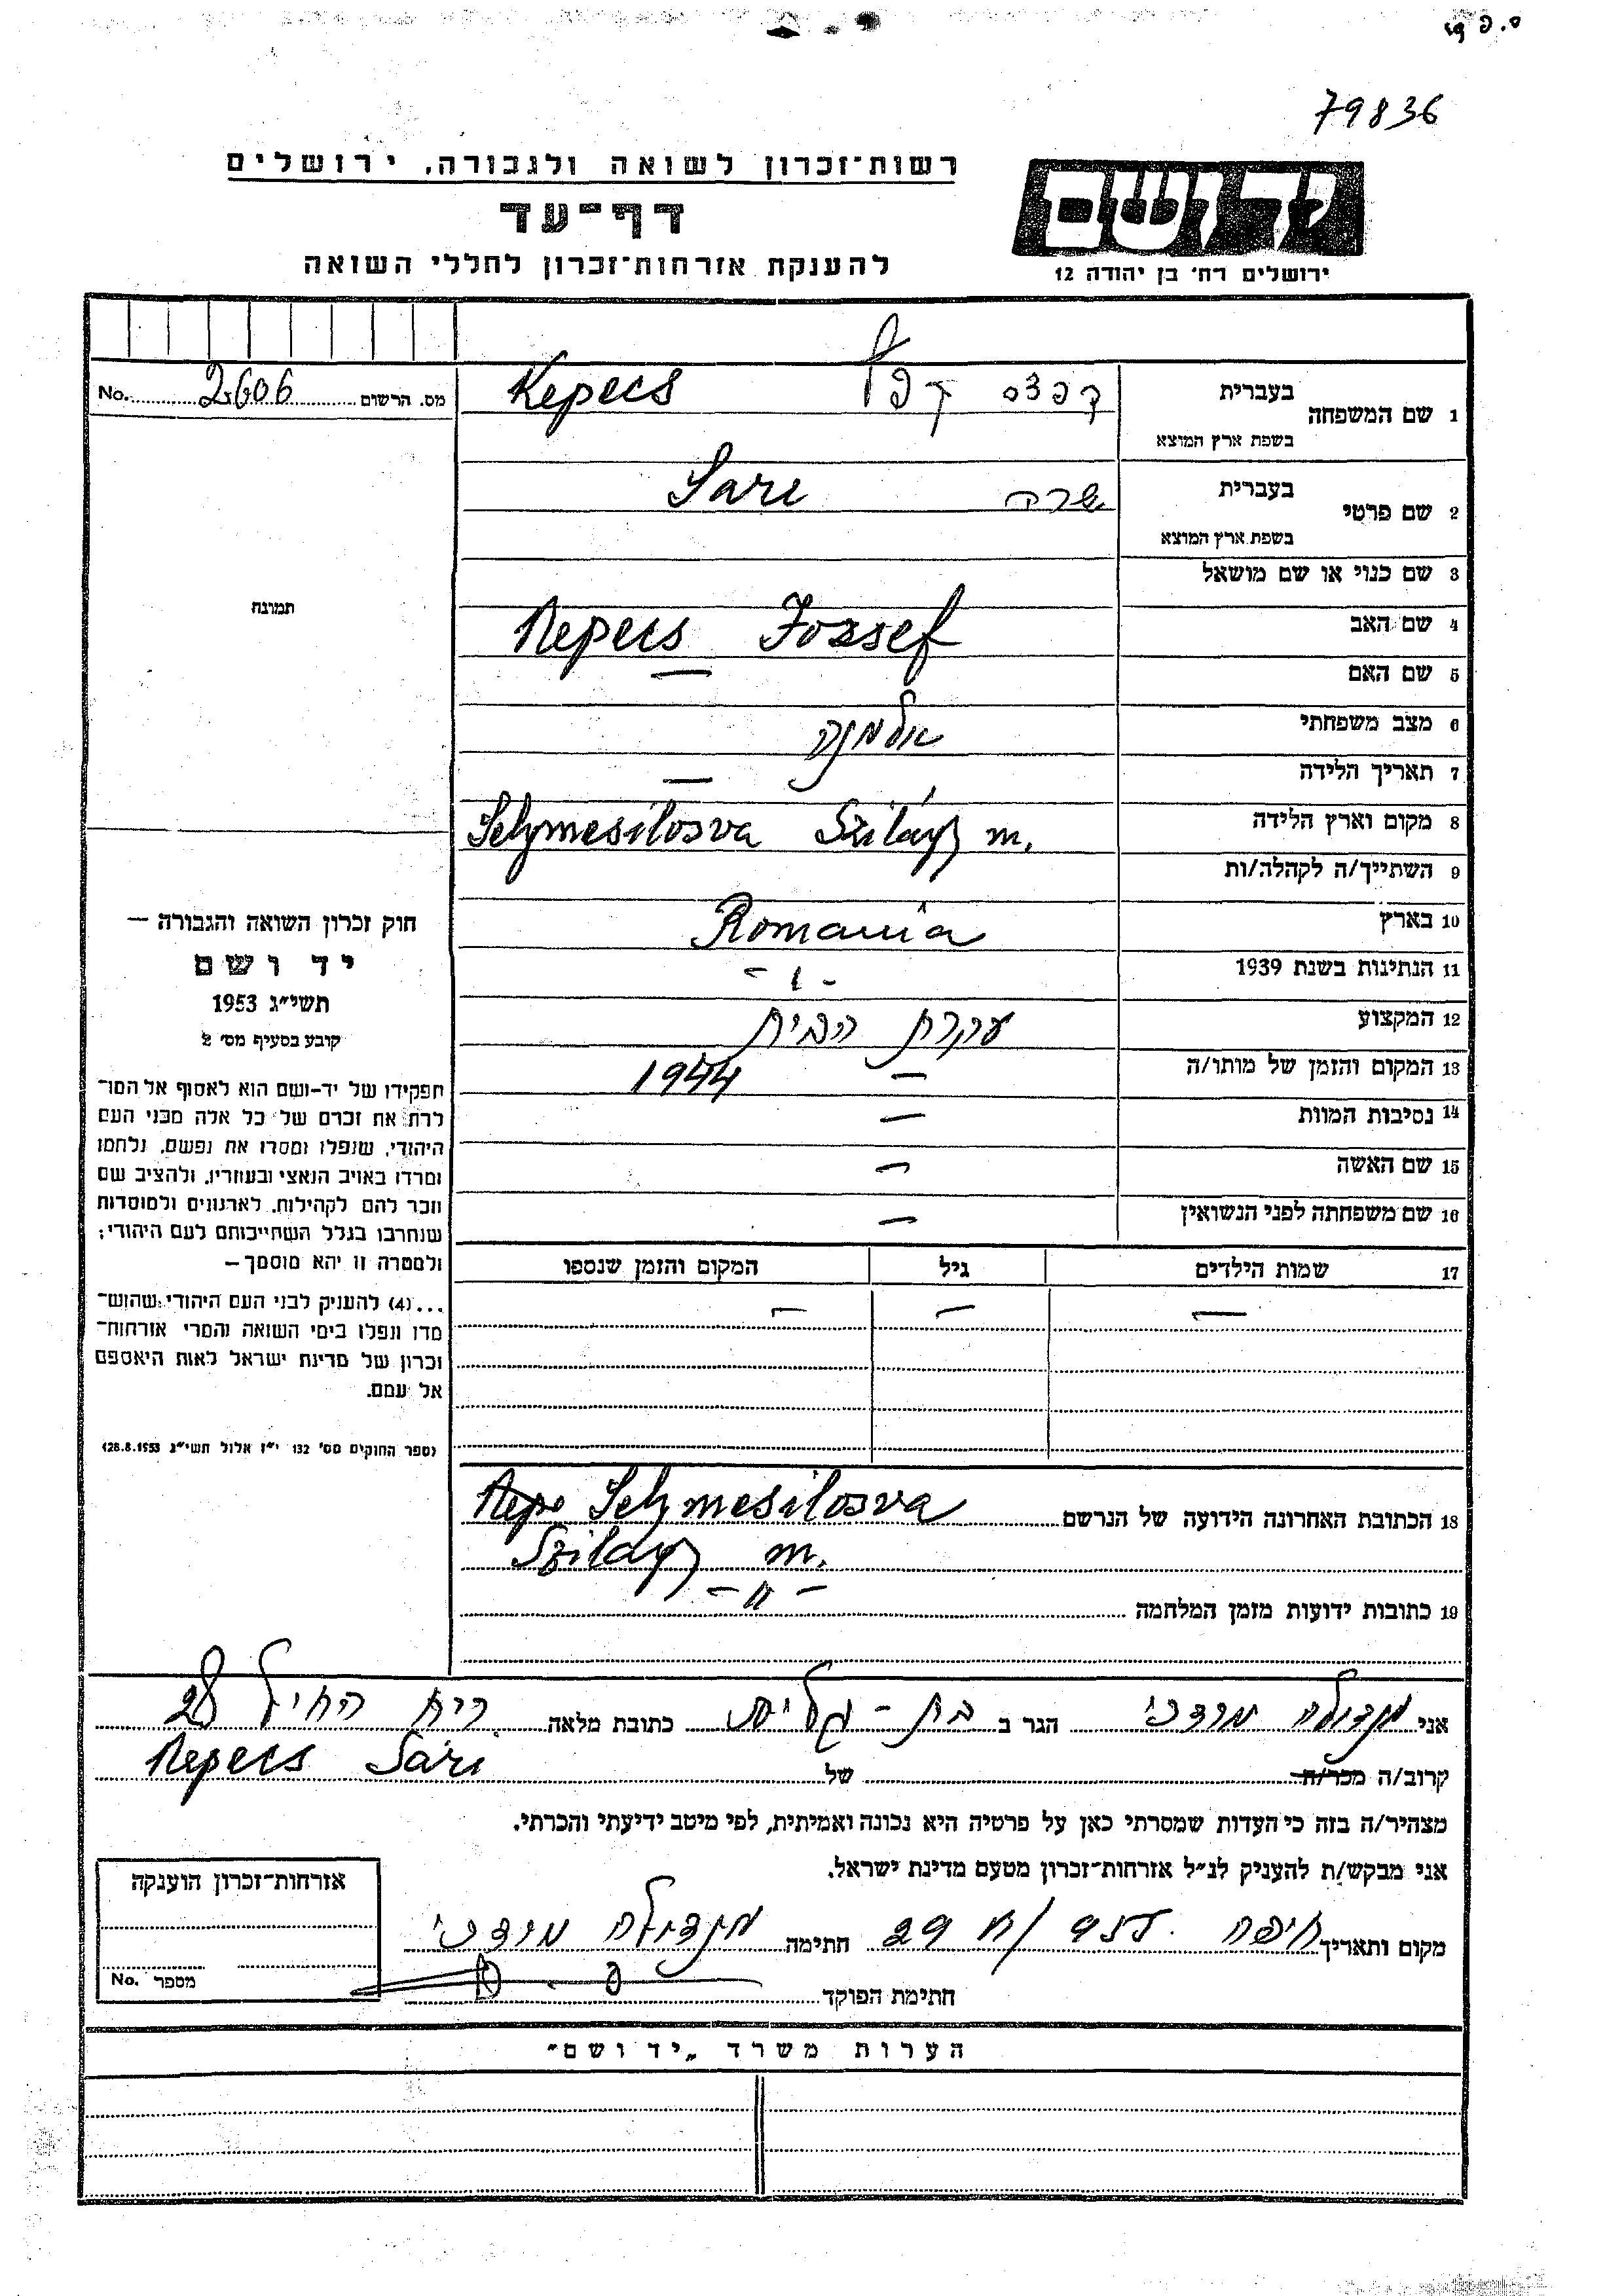 79836
רשות־זכרון לשואה ולגבורה, ירושלים
דף־עד
להענקת אזרחות־זכרון לחללי השואה
יד ושם
ירושלים רח׳ בן יהודה 12
מס. הרשום 2606 No.
1 שם המשפחה בעברית קפצס Kepecs
בשפת ארץ המוצא
2 שם פרטי בעברית שרה Sari
בשפת ארץ המוצא
3 שם כנוי או שם מושאל
4 שם האב Kepecs Jozsef
5 שם האם —
6 מצב משפחתי אלמנה
7 תאריך הלידה —
8 מקום וארץ הלידה Selymesilosva Szilágy m.
9 השתייך/ה לקהלה/ות
10 בארץ Romania
11 הנתינות בשנת 1939 - ı -
12 המקצוע עקרת הבית
13 המקום והזמן של מותו/ה — 1944
14 נסיבות המוות —
15 שם האשה —
16 שם משפחתה לפני הנשואין —
17 שמות הילדים גיל המקום והזמן שנספו
— — —
18 הכתובת האחרונה הידועה של הנרשם Selymesilosva
Szilágy m.
19 כתובות ידועות מזמן המלחמה - ıı -
תמונה
חוק זכרון השואה והגבורה —
יד ושם
תשי״ג 1953
קובע בסעיף מס׳ 2
תפקידו של יד-ושם הוא לאסוף אל המו־
לדת את זכרם של כל אלה מבני העם
היהודי, שנפלו ומסרו את נפשם, נלחמו
ומרדו באויב הנאצי ובעוזריו, ולהציב שם
וזכר להם לקהילות, לארגונים ולמוסדות
שנחרבו בגלל השתייכותם לעם היהודי;
ולמטרה זו יהא מוסמך —
...(4) להעניק לבני העם היהודי שהוש־
מדו ונפלו בימי השואה והמרי אזרחות־
זכרון של מדינת ישראל לאות היאספם
אל עמם.
(ספר החוקים מס׳ 132 י״ז אלול תשי״ג 28.8.1953)
אני מנדולה מרדכי הגר ב בת-גלים כתובת מלאה רח החיל 28
קרוב/ה מכר/ה של Kepecs Sári
מצהיר/ה בזה כי העדות שמסרתי כאן על פרטיה היא נכונה ואמיתית, לפי מיטב ידיעתי והכרתי.
אני מבקש/ת להעניק לנ״ל אזרחות־זכרון מטעם מדינת ישראל.
מקום ותאריך חיפה חתימה מנדולה מרדכי
חתימת הפוקד
אזרחות־זכרון הוענקה
מספר No.
הערות משרד „יד ושם״